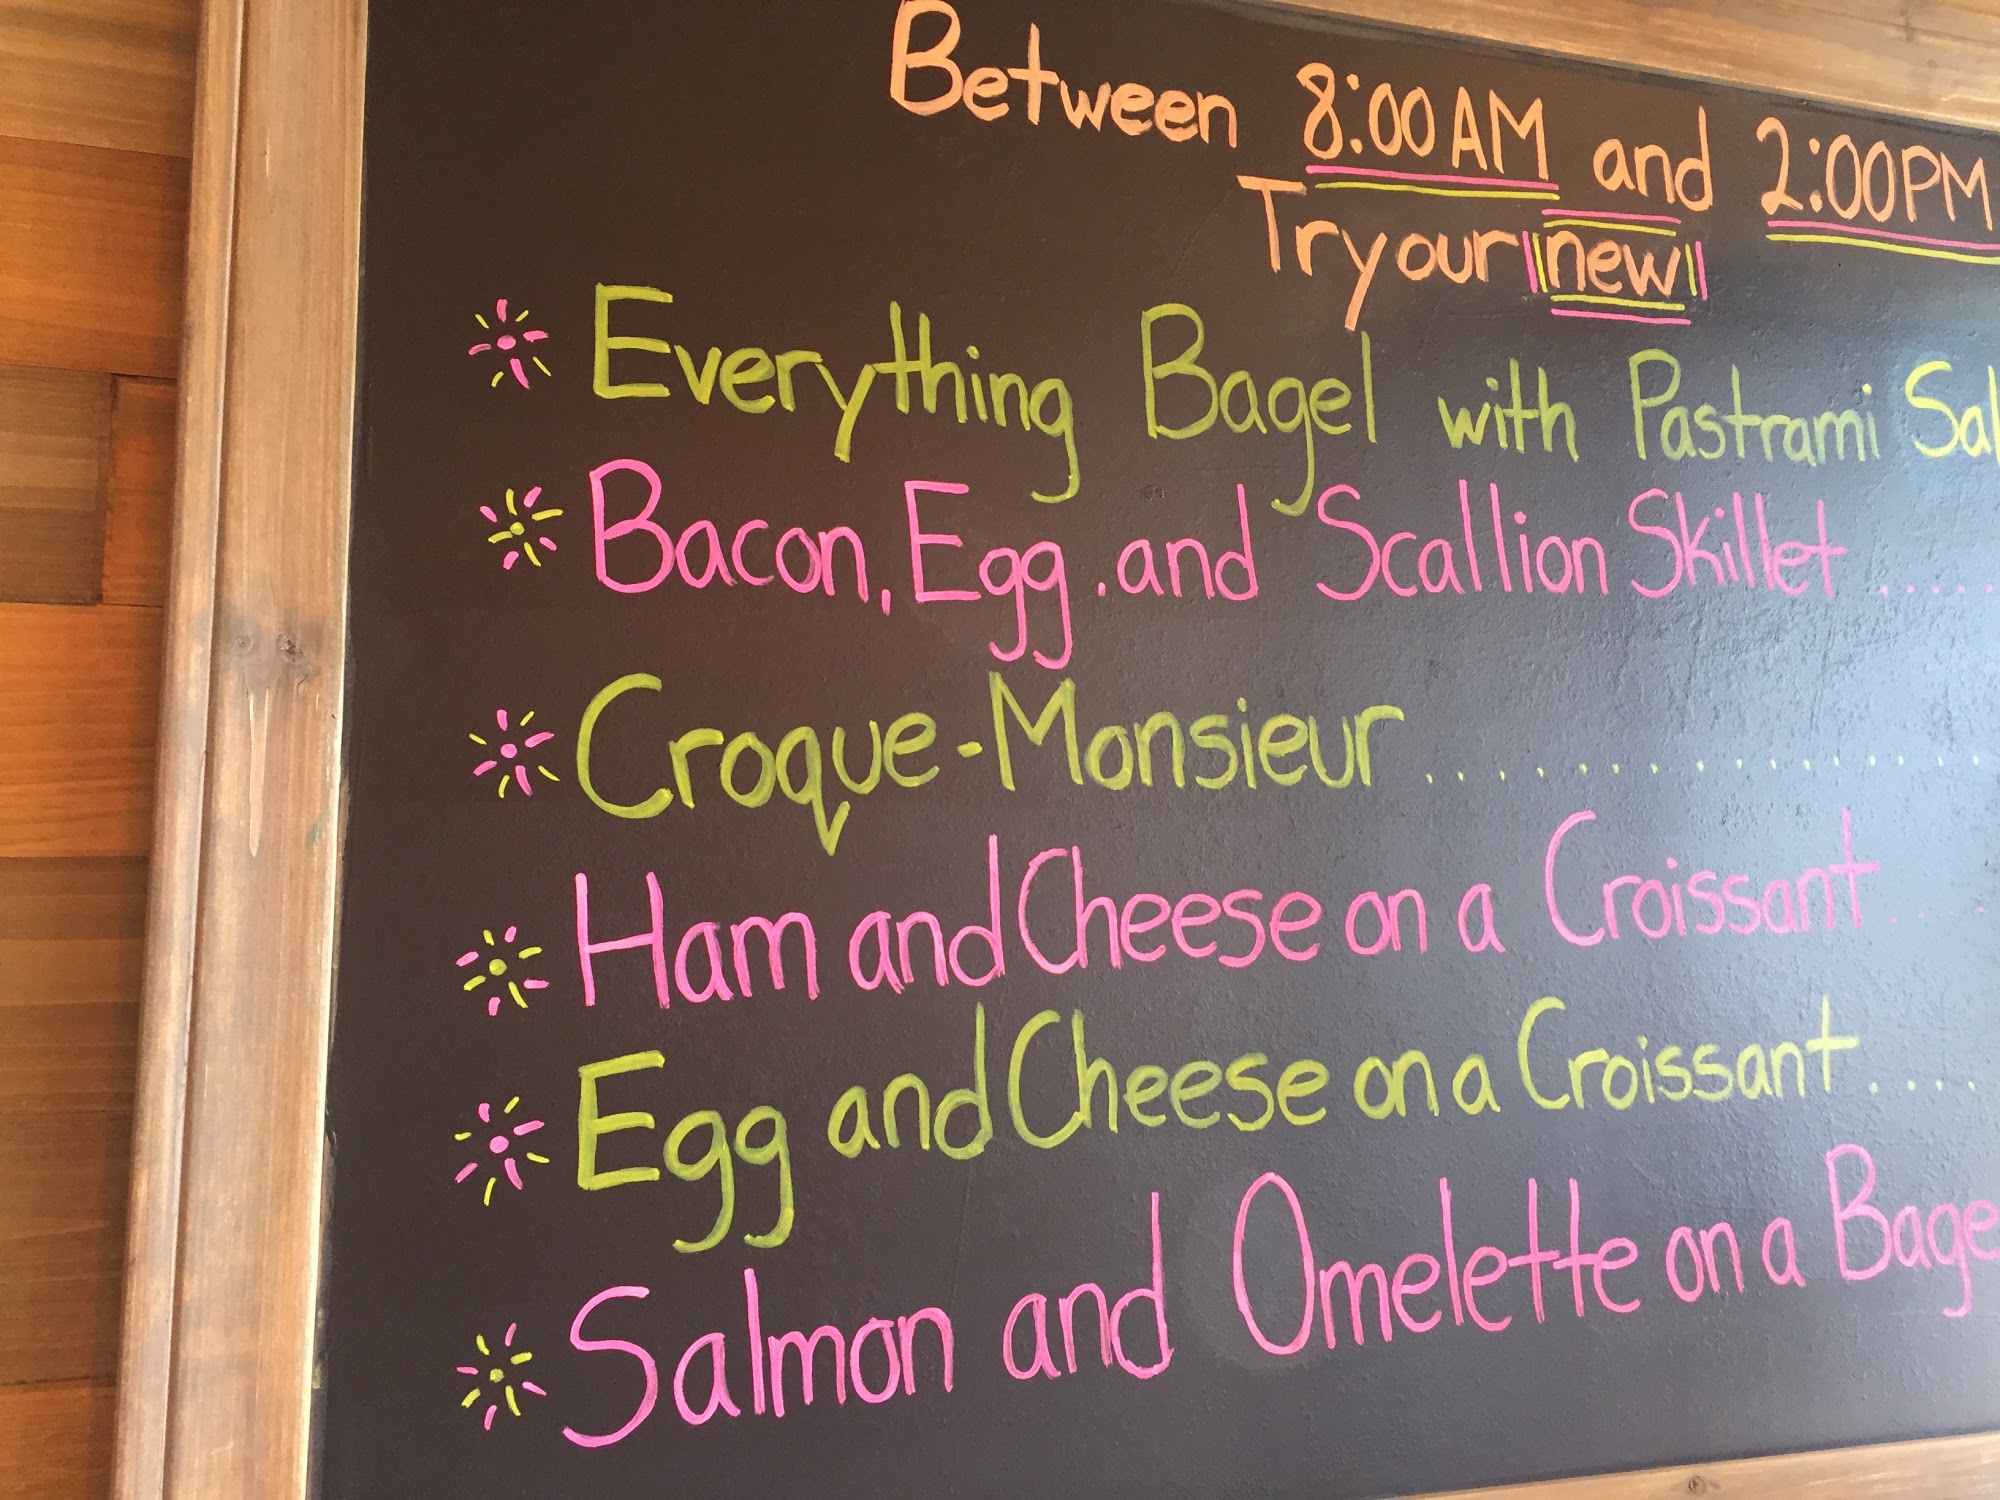 Between 8:00AM and 2:00PM
Try our new
Everything Bagel with Pastrami Sal
Bacon, Egg, and Scallion Skillet .....
Croque-Monsieur ................
Ham and Cheese on a Croissant .....
Egg and Cheese on a Croissant ....
Salmon and Omelette on a Bage